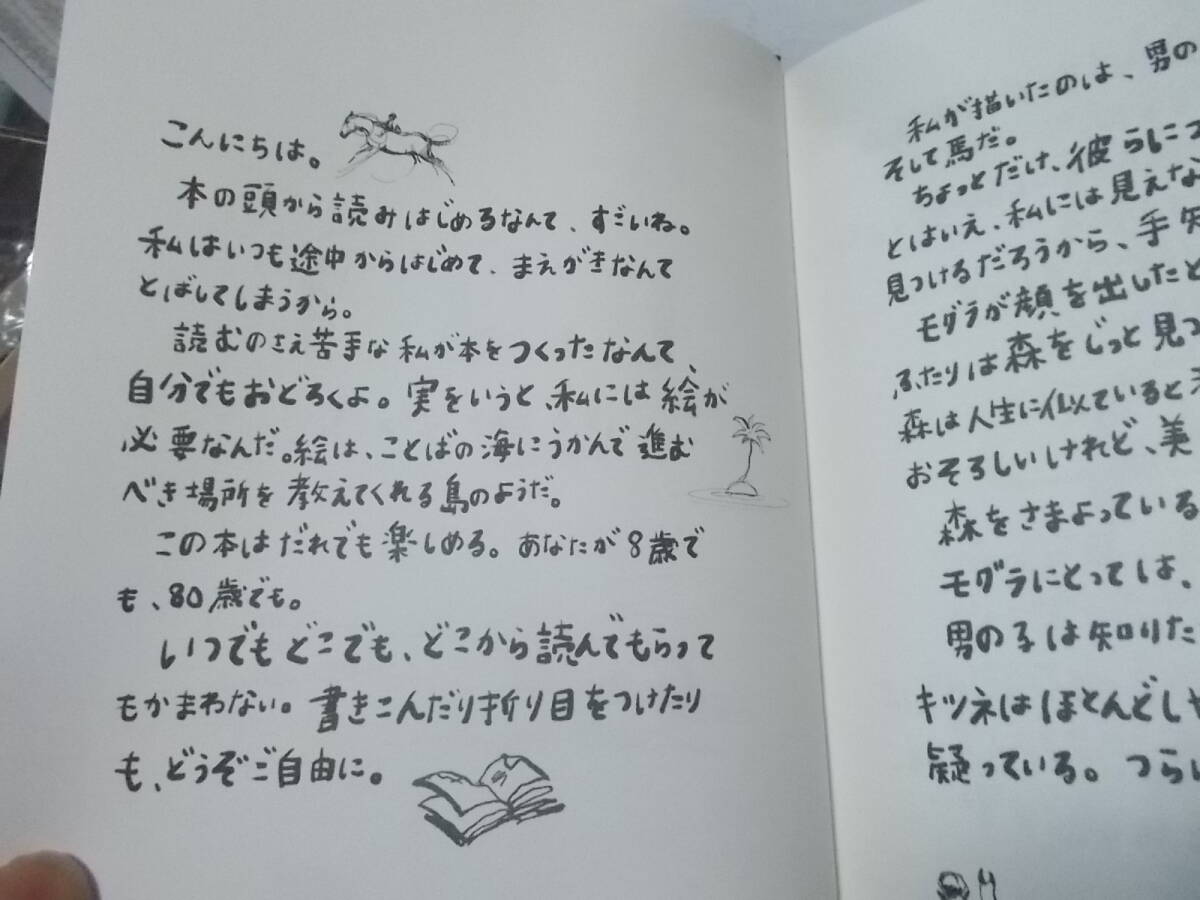 こんにちは。
本の頭から読みはじめるなんて、すごいね。
私はいつも途中からはじめて、まえがきなんて
とばしてしまうから。
読むのさえ苦手な私が本をつくったなんて、
自分でもおどろくよ。実をいうと、私には絵が
必要なんだ。絵は、ことばの海にうかんで進む
べき場所を教えてくれる島のようだ。
この本はだれでも楽しめる。あなたが8歳で
も、80歳でも。
いつでもどこでも、どこから読んでもらって
もかまわない。書きこんだり折り目をつけたり
も、どうぞご自由に。
私が描いたのは、男の
そして馬だ。
ちょっとだけ、彼らにつ
とはいえ、私には見えな
見つけるだろうから、手短
モグラが顔を出したと
ふたりは森をじっと見つ
森は人生に似ていると
おそろしいけれど、美
森をさまよっている
モグラにとっては、
男の子は知りた
キツネはほとんどしゃ
疑っている。つらい